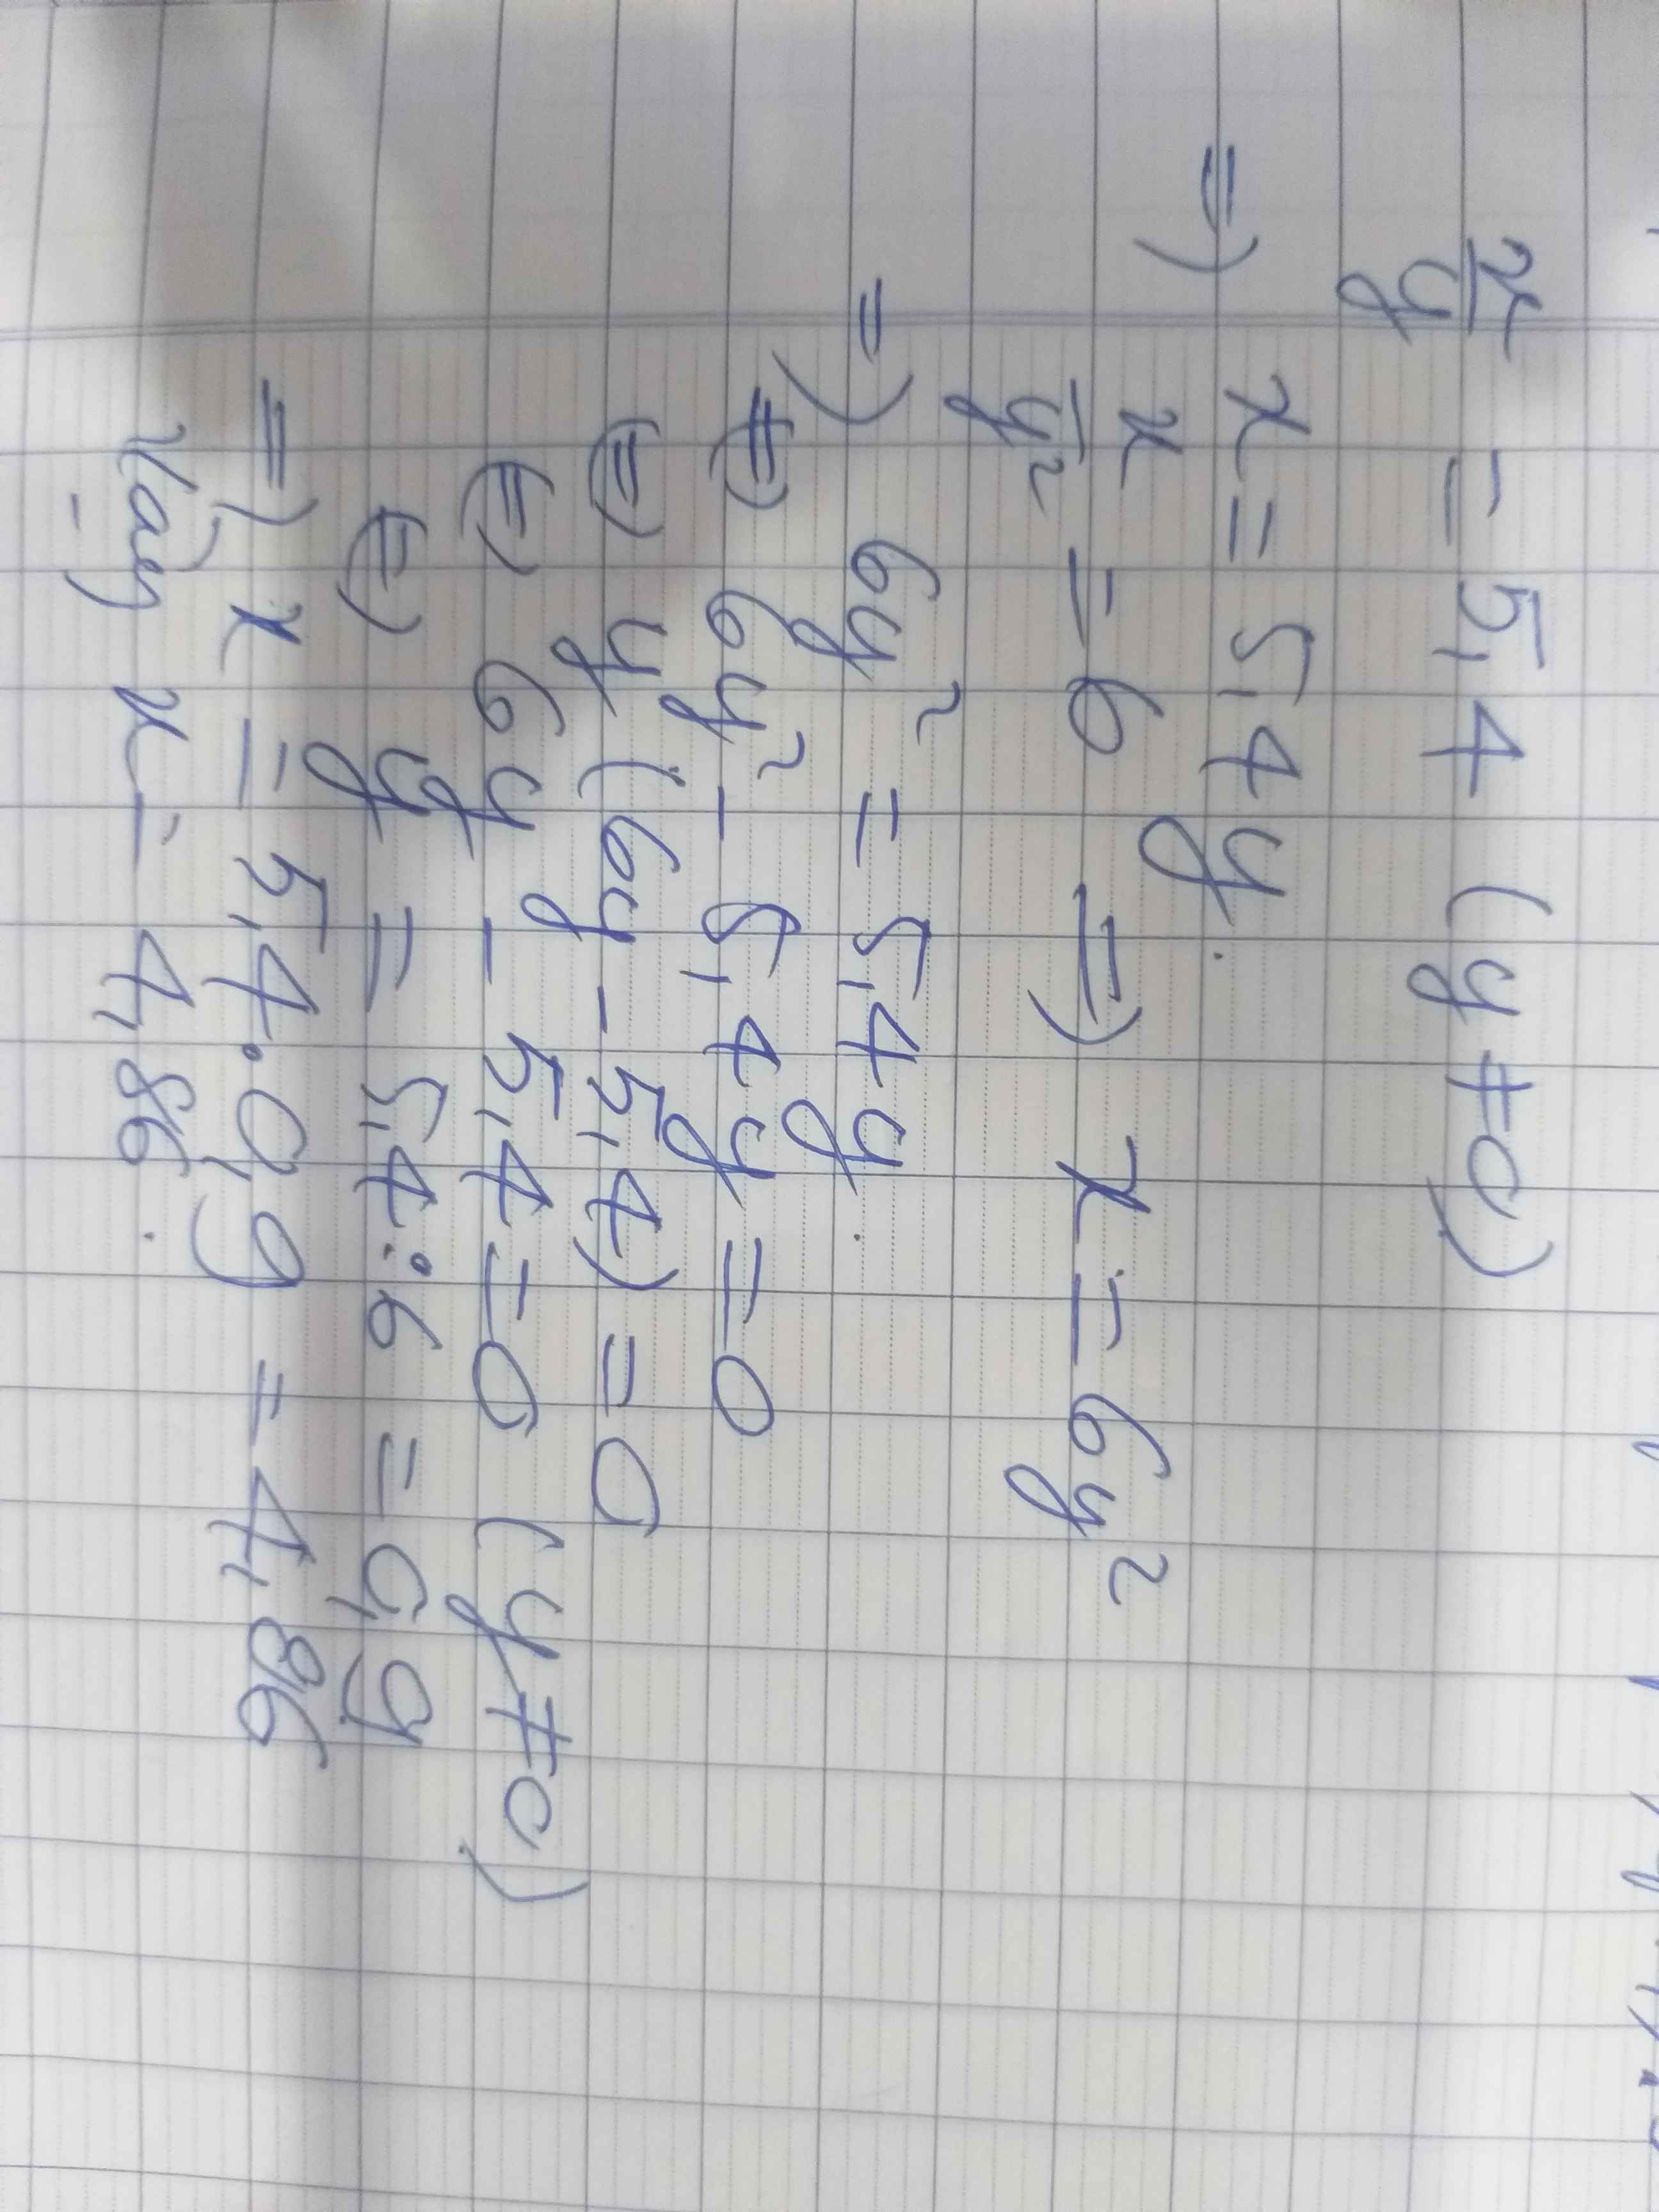 x/y = 5,4 (y ≠ 0)
=) x = 5,4y.
x/y² = 6 =) x = 6y²
=) 6y² = 5,4y.
(=) 6y² - 5,4y = 0
(=) y (6y - 5,4) = 0
(=) 6y - 5,4 = 0 (y ≠ 0)
(=) y = 5,4 : 6 = 0,9
=) x = 5,4 . 0,9 = 4,86
Vậy x = 4,86.